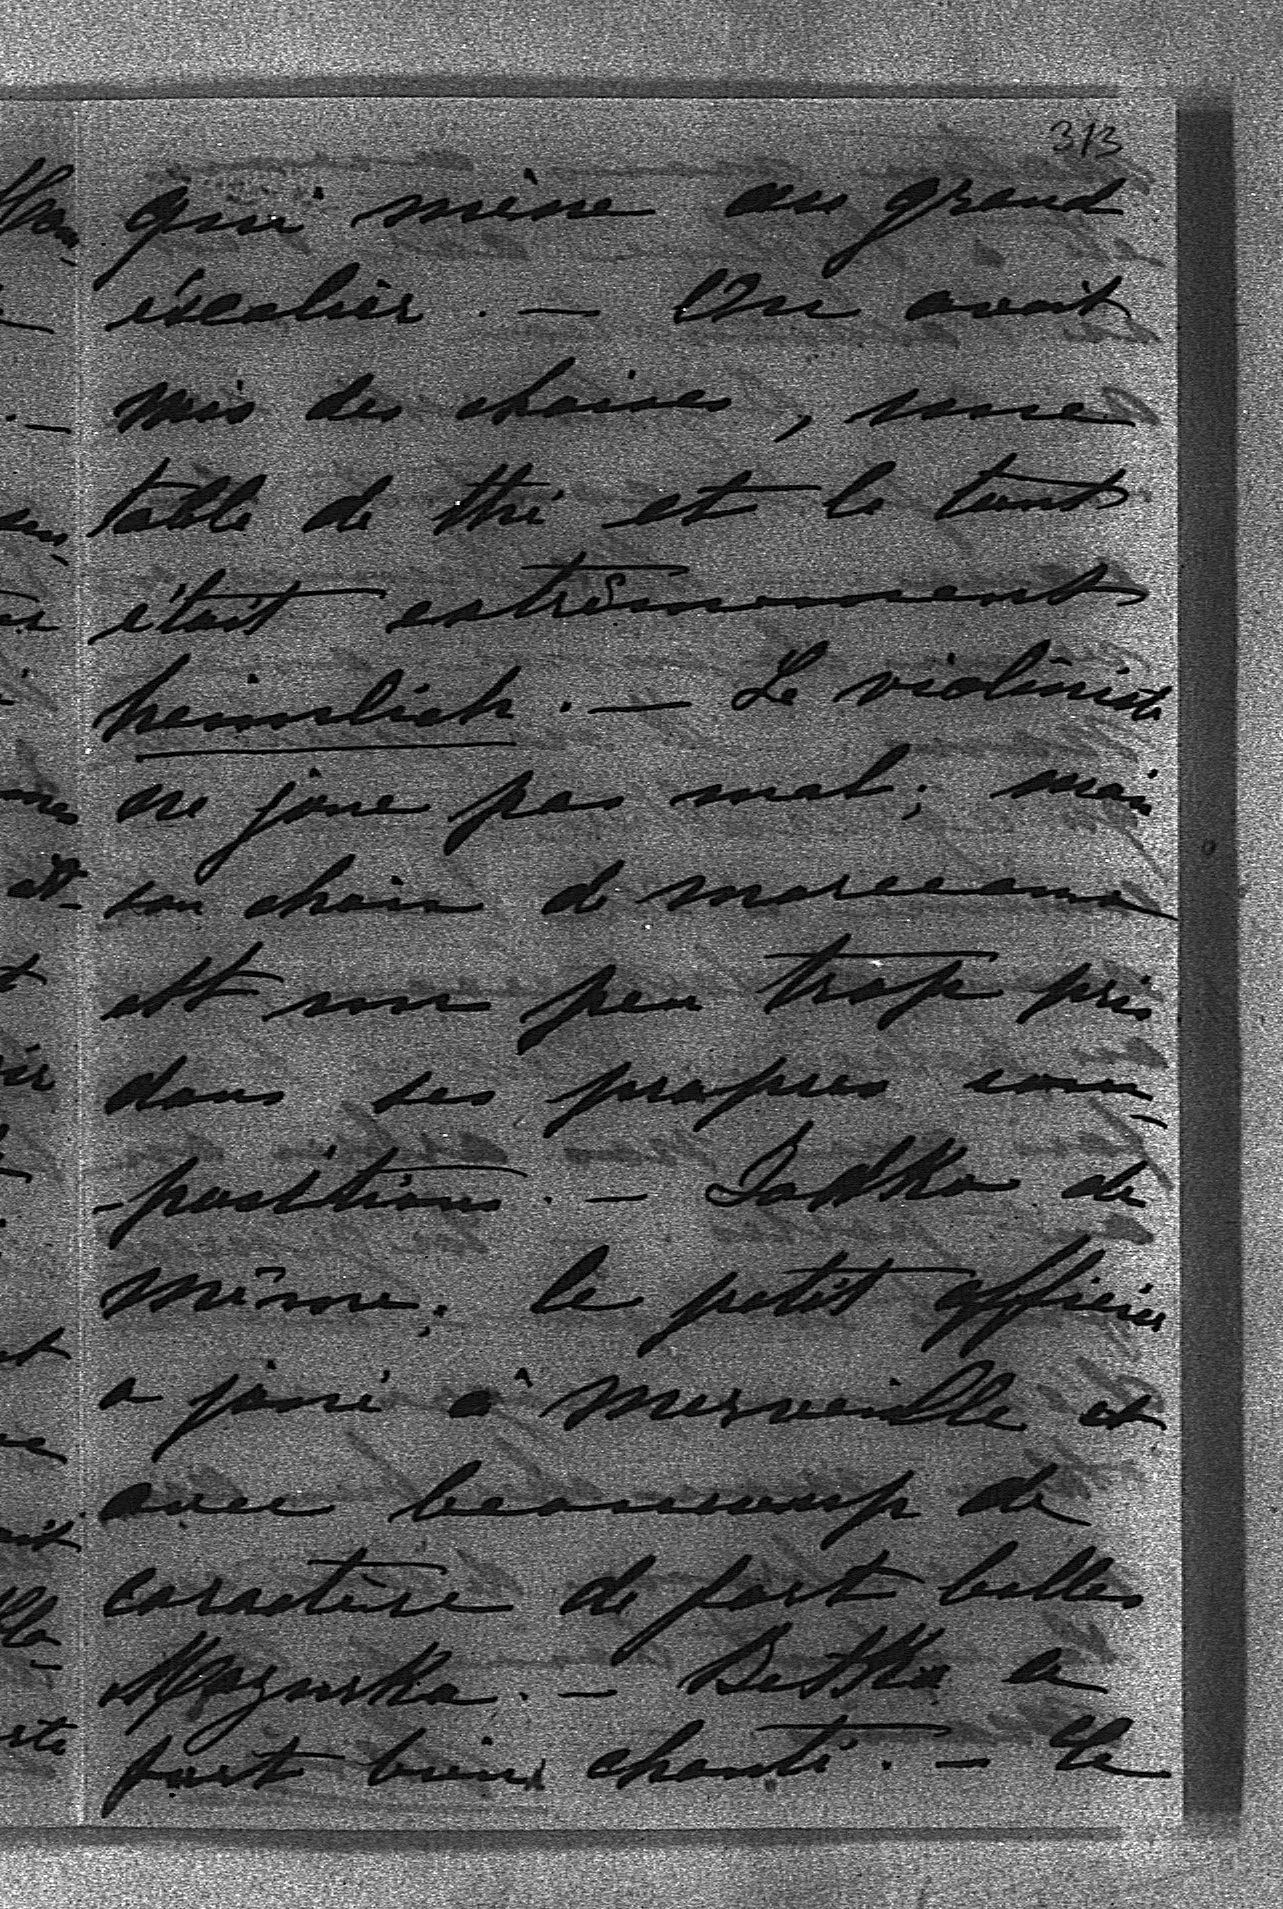 313
qui mène au grand
éscalier. — On avait
mis des chaises, une
table de thé et le tout
était extrêmement
heimlich. — Le violinist
ne joue pas mal; mais
son choix d morceaux
est un peu trop pris
dans ses propres com-
-positions. — Jadka de
même; le petit officier
a joué à merveille et
avec beaucoup de
caractère de fort belles
Mazurka. — Betka a
fort bien chanté. — Le